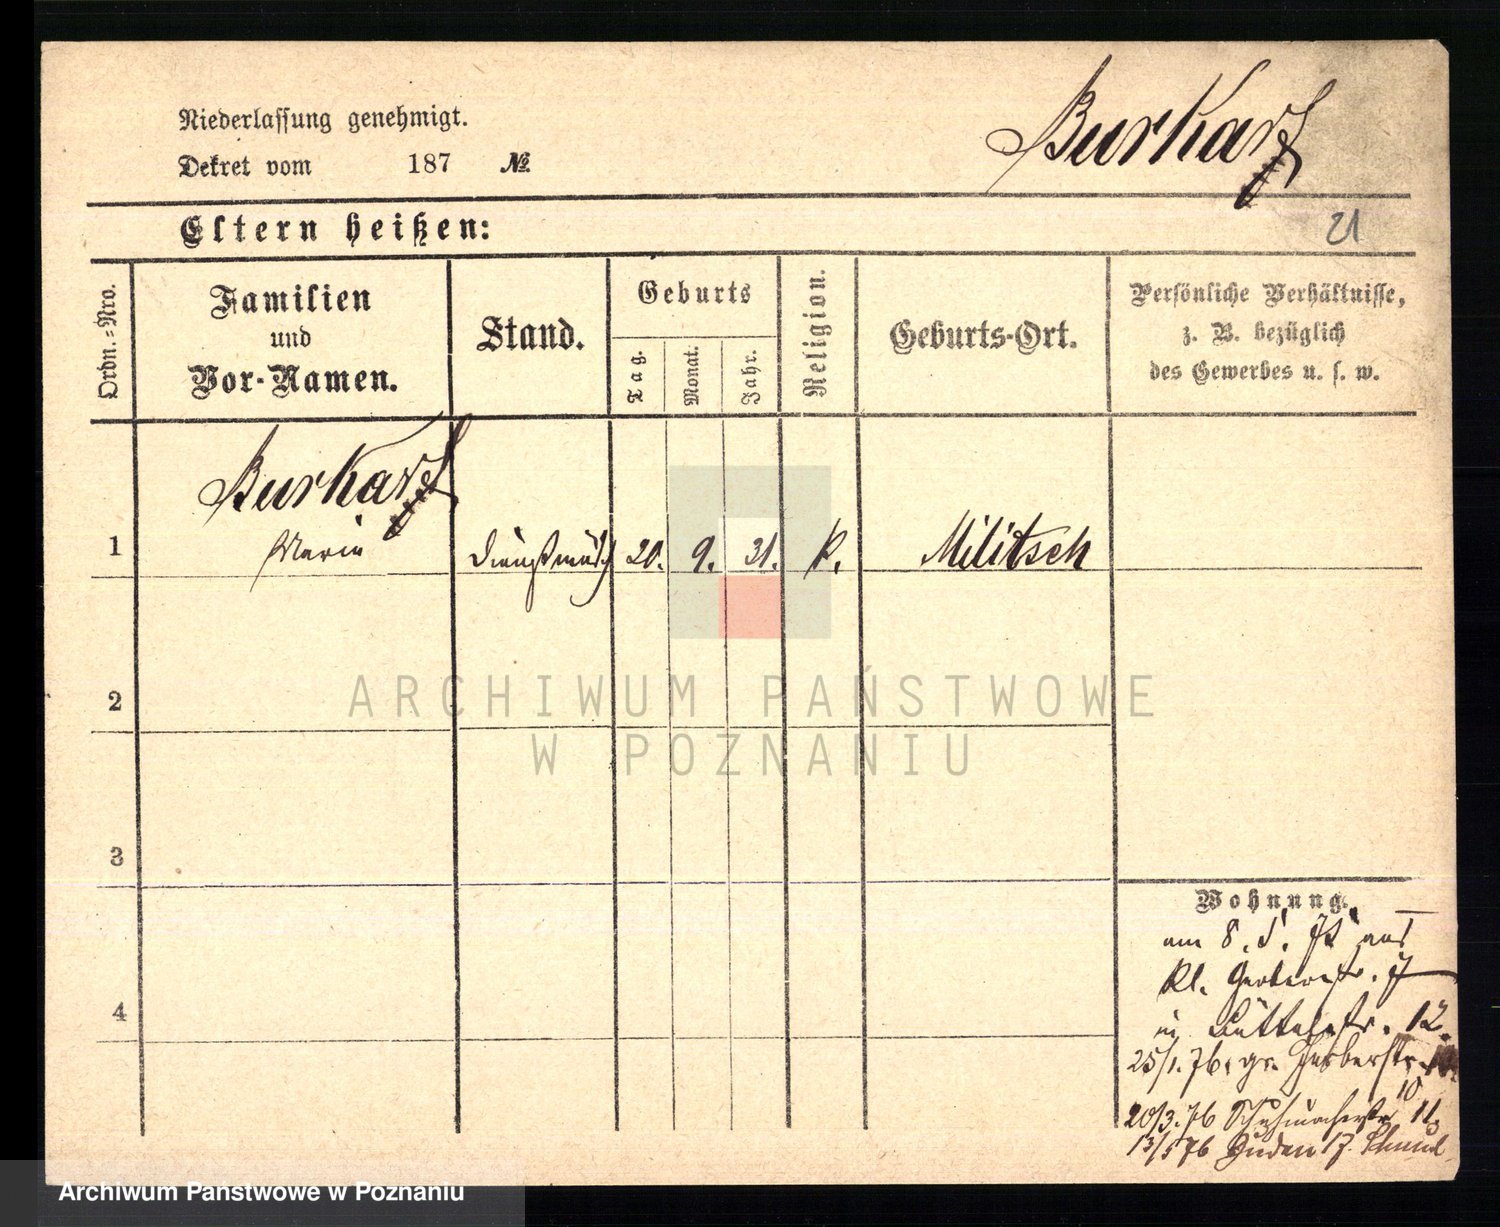 Niederlassung genehmigt.
Burkart
Dekret vom 187 №
Eltern heißen:
21
Ordn.-Nro.
Familien
und
Vor-Namen.
Stand.
Geburts
Tag.
Monat.
Jahr.
Religion.
Geburts-Ort.
Persönliche Verhältnisse,
z. B. bezüglich
des Gewerbes u. s. w.
Burkart
1 Marie Dienstmäd 20. 9. 31. K. Militsch
2
3
4
Wohnung.
am 8. 5. 75 aus
Kl. Gerberstr. 7
in Büttelstr. 12.
25/1. 76. gr. Gerberstr.
10
20/3. 76 Schuhmacherstr 11.
13/5 76 Juden 17.
ARCHIWUM PAŃSTWOWE
W POZNANIU
Archiwum Państwowe w Poznaniu